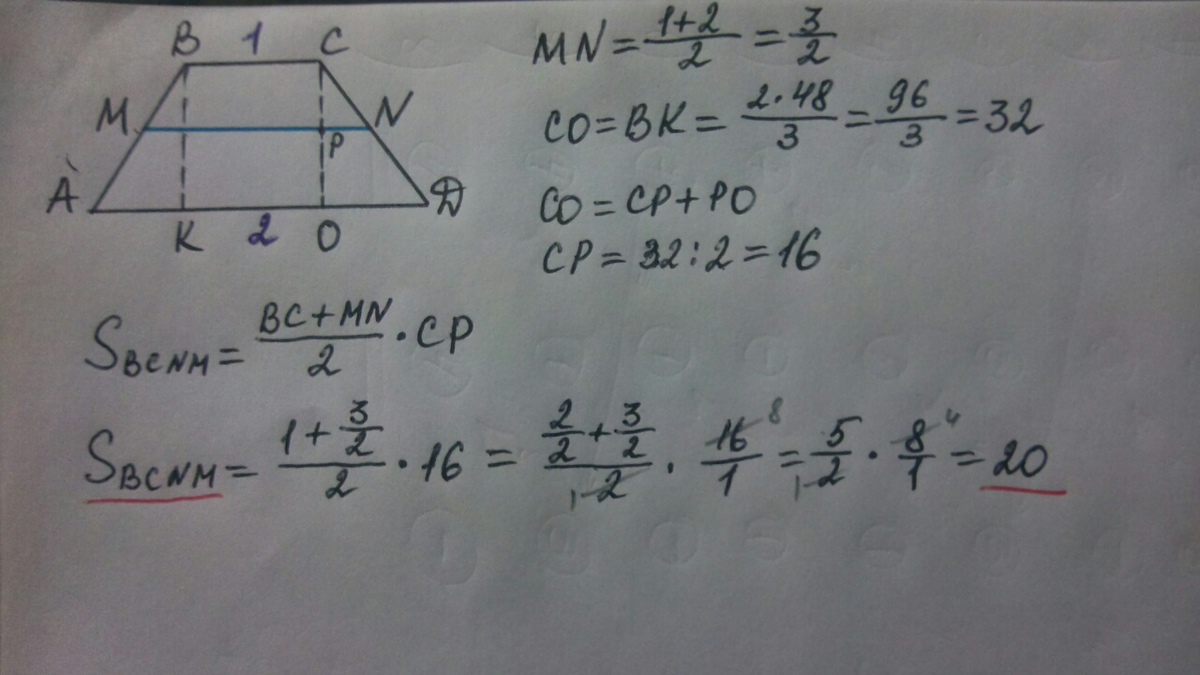 B 1 C
M N
P
A D
K 2 O
MN = \frac{1+2}{2} = \frac{3}{2}
CO = BK = \frac{2 \cdot 48}{3} = \frac{96}{3} = 32
CO = CP + PO
CP = 32 : 2 = 16
S_{BCNM} = \frac{BC + MN}{2} \cdot CP
S_{BCNM} = \frac{1 + \frac{3}{2}}{2} \cdot 16 = \frac{\frac{2}{2} + \frac{3}{2}}{2} \cdot \frac{16}{1} = \frac{5}{2} \cdot \frac{8}{1} = 20
1 8 1 4